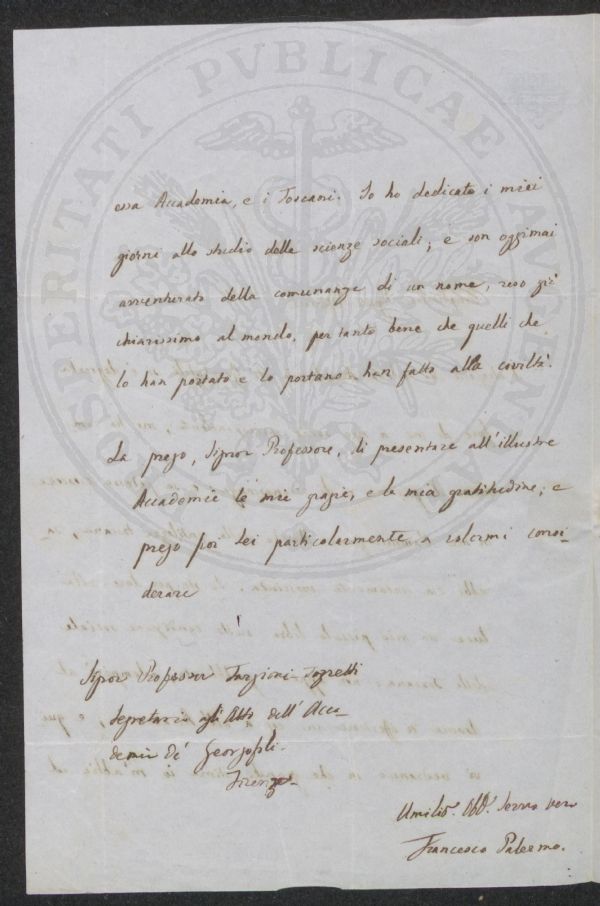 PROSPERITATI PVBLICAE AVGENDAE
essa Accademia, e i Toscani. Io ho dedicato i miei
giorni allo studio delle scienze sociali; e son oggimai
avventurato della comunanza di un nome, reso già
chiarissimo al mondo, per tanto bene che quelli che
lo han portato e lo portano han fatto alla civiltà.
La prego, Signor Professore, di presentare all'illustre
Accademia le mie grazie, e la mia gratitudine; e
prego poi Lei particolarmente a volermi consi-
derare
Signor Professor Targioni-Tozzetti
Segretario agli Atti dell'Acca-
demia de' Georgofili.
Firenze
Umilis. Obb. Servo vero
Francesco Palermo.